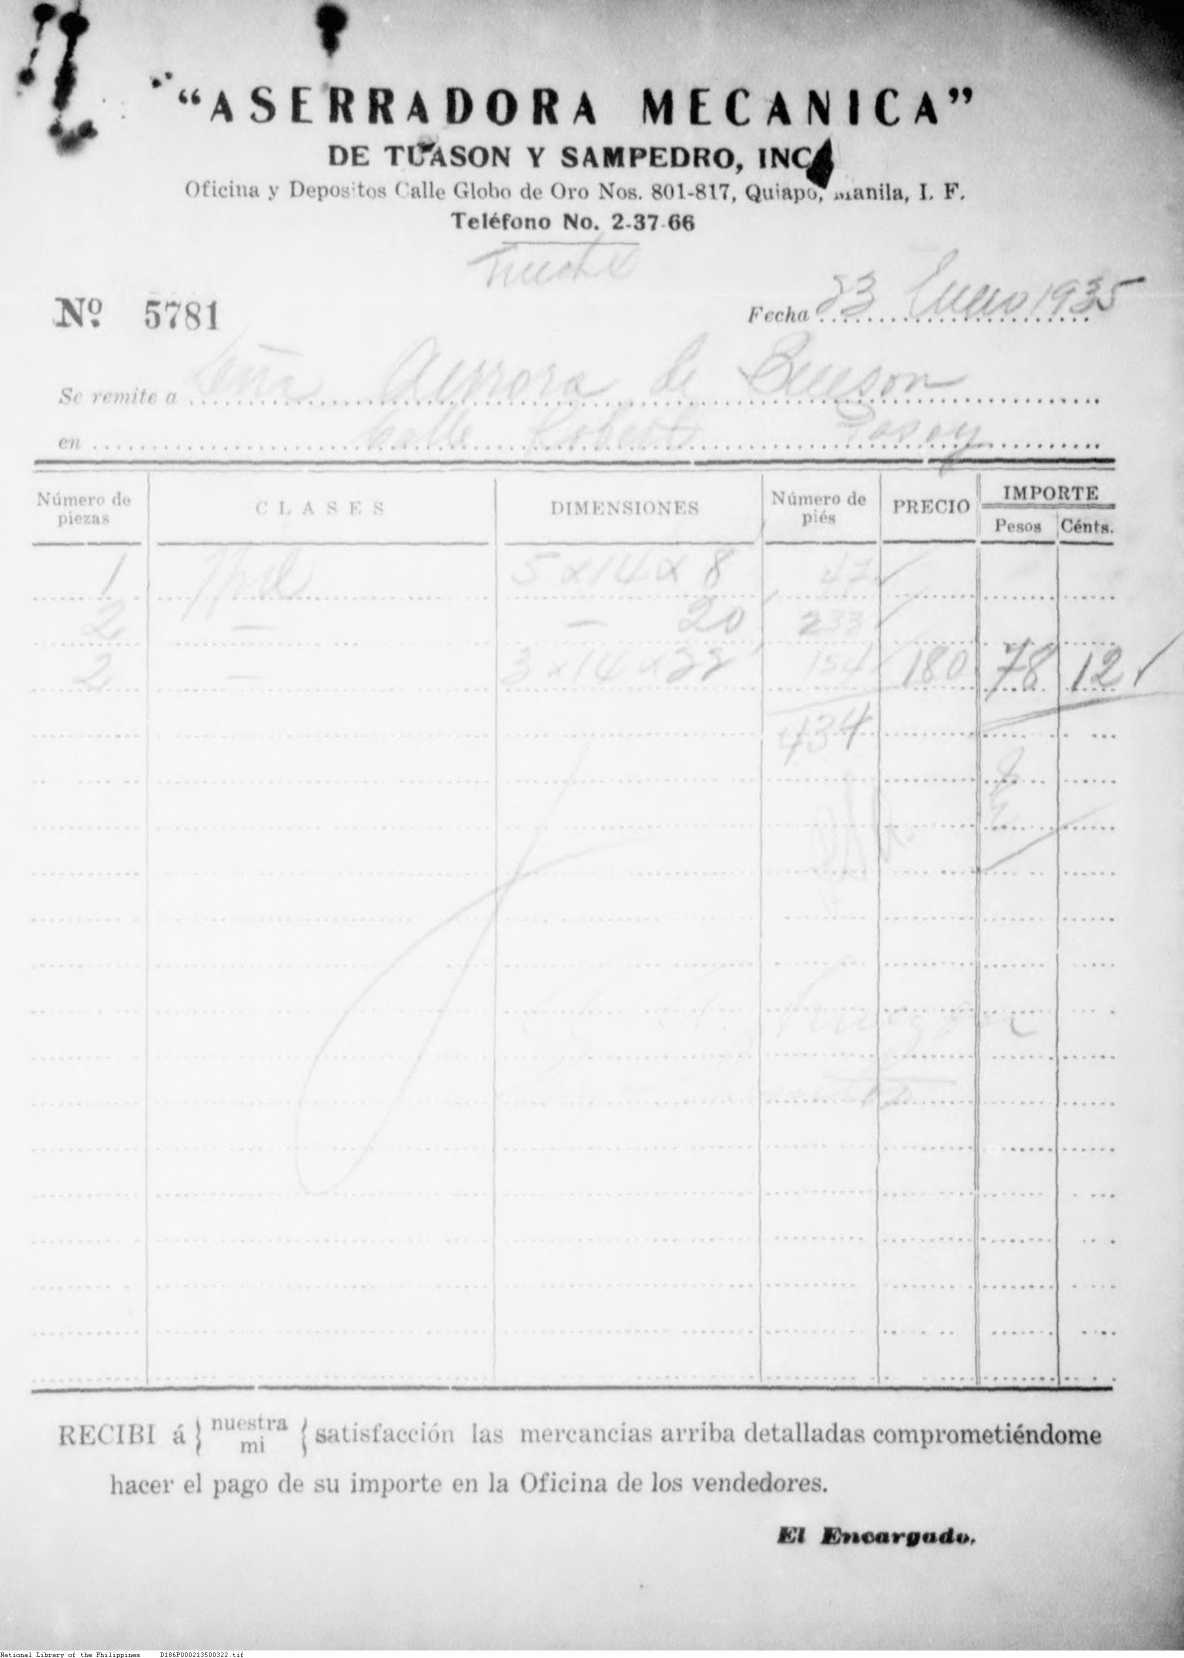 "ASERRADORA MECANICA"
DE TUASON Y SAMPEDRO, INC.
Oficina y Depositos Calle Globo de Oro Nos. 801-817, Quiapo, Manila, I. F.
Teléfono No. 2-37-66
Nº 5781 Fecha 23 Enero 1935
Se remite a Sñra Aurora de
en Calle Roberts Pasay
Número de piezas CLASES DIMENSIONES Número de piés PRECIO IMPORTE
Pesos Cénts.
1 5 x 14 x 8' 47 ✓
2 — — 20' 233 ✓
2 — 3 x 14 x 22' 154 ✓ 180 78 12 ✓
434
RECIBI á } nuestra mi { satisfacción las mercancias arriba detalladas comprometiéndome
hacer el pago de su importe en la Oficina de los vendedores.
El Encargado,
National Library of the Philippines D186P000213500322.tif